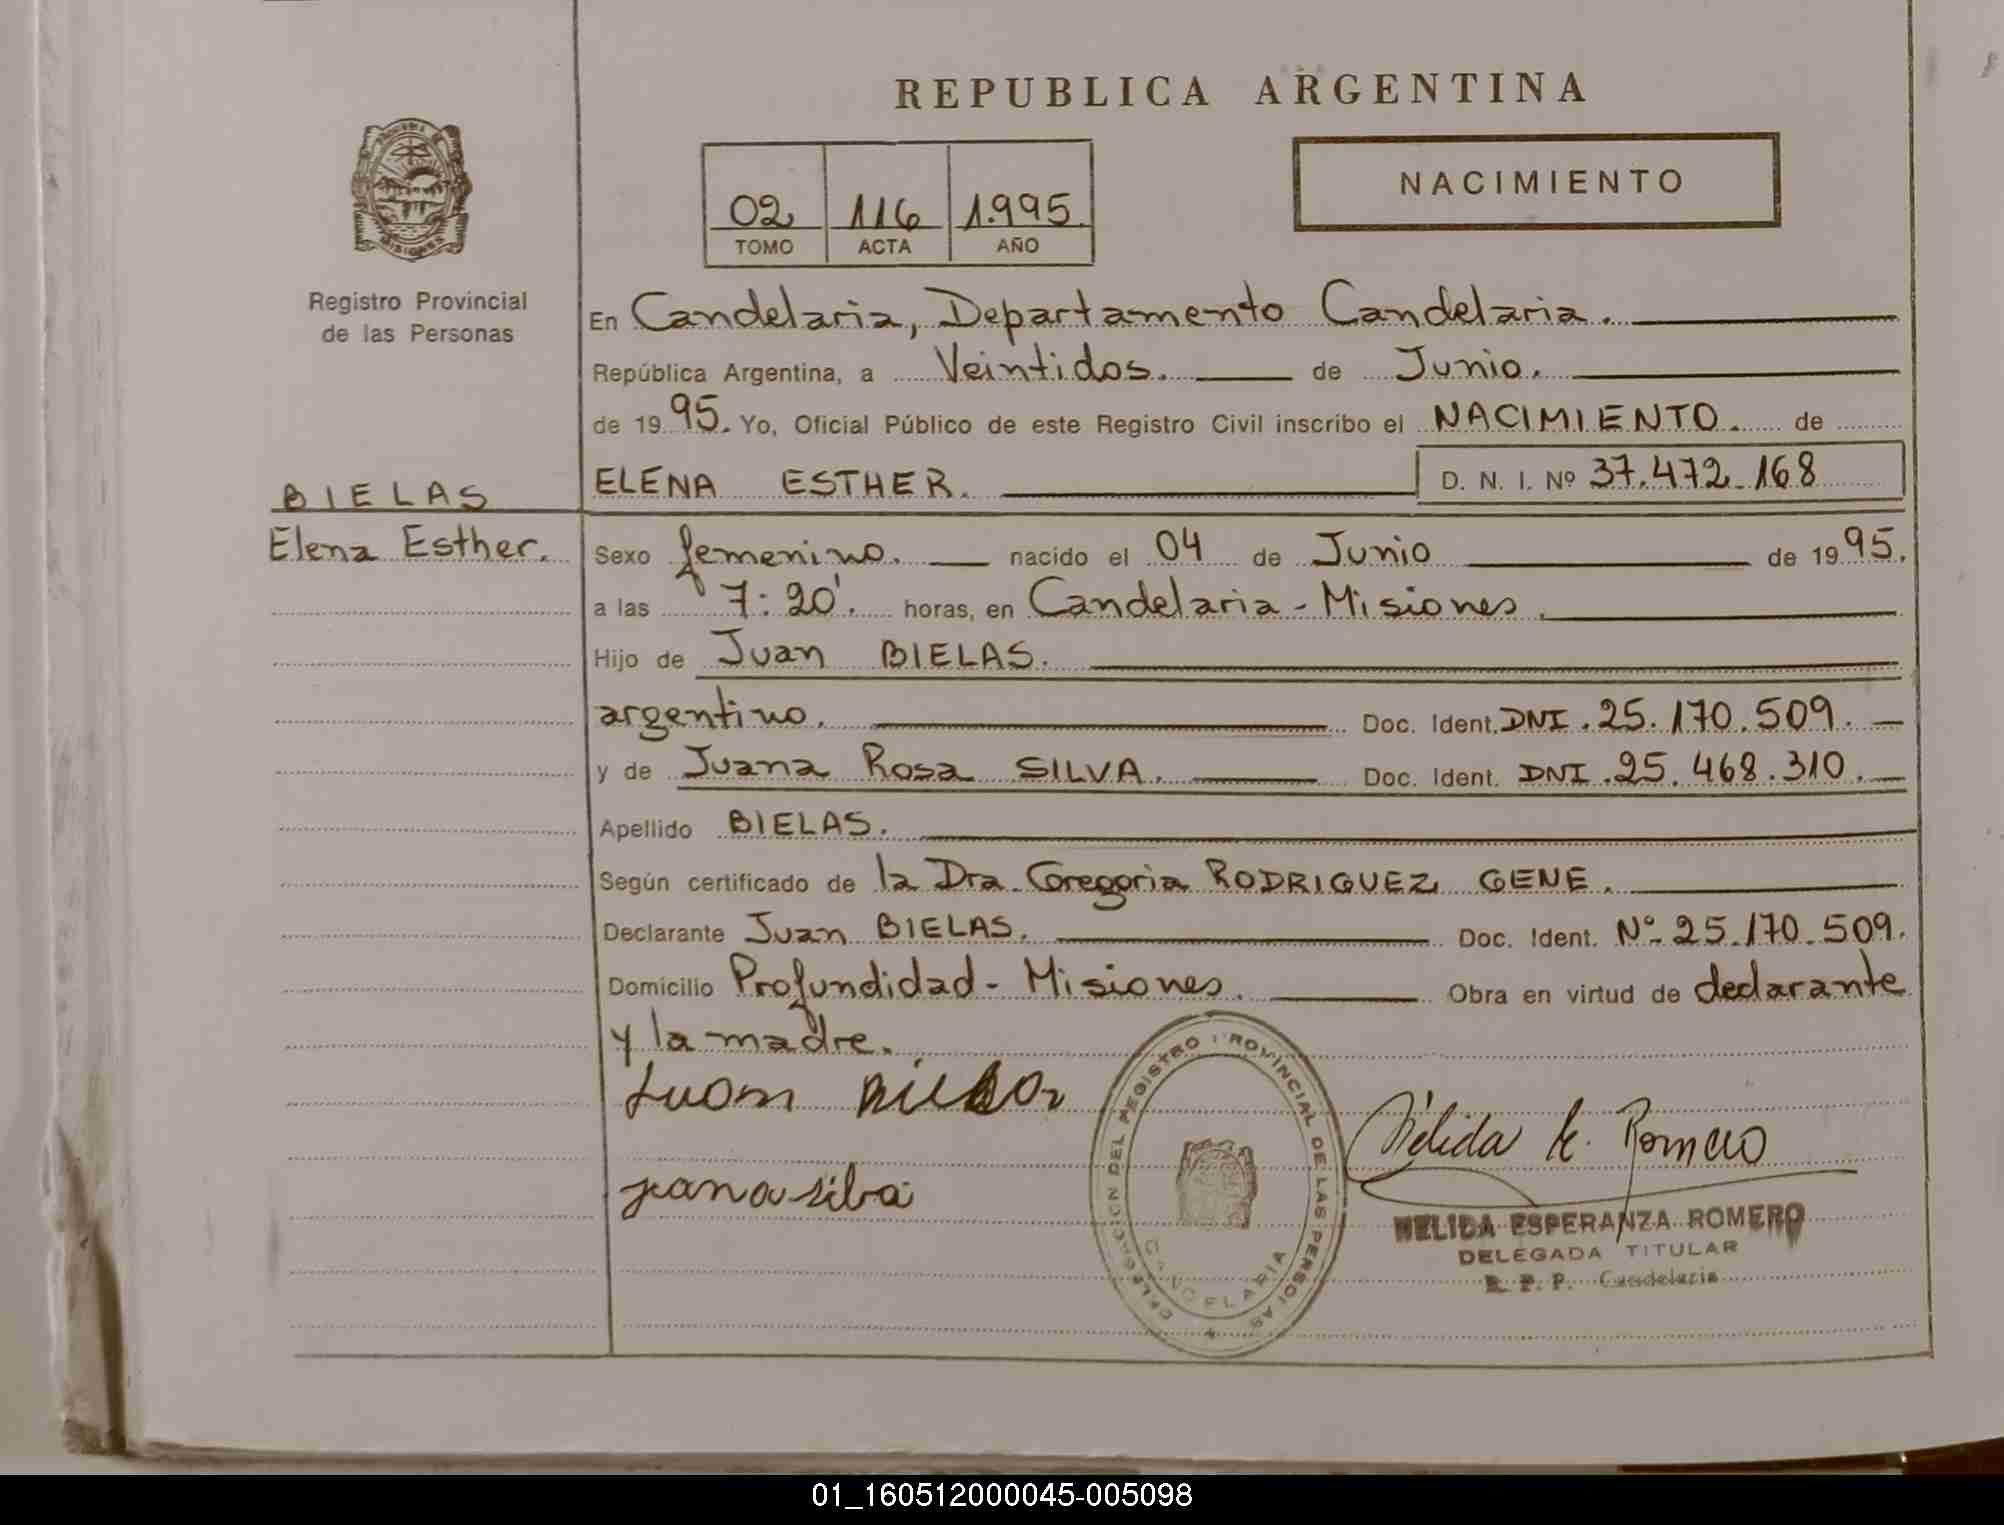 REPUBLICA ARGENTINA
NACIMIENTO
02 116 1.995.
TOMO ACTA AÑO
MISIONES
Registro Provincial
de las Personas
En Candelaria, Departamento Candelaria.
República Argentina, a Veintidos. de Junio.
de 1995. Yo, Oficial Público de este Registro Civil inscribo el NACIMIENTO. de
ELENA ESTHER. D. N. I. Nº 37.472.168
BIELAS
Elena Esther.
Sexo femenino. nacido el 04 de Junio de 1995.
a las 7:20'. horas, en Candelaria - Misiones.
Hijo de Juan BIELAS.
argentino. Doc. Ident. DNI. 25.170.509.
y de Juana Rosa SILVA. Doc. Ident. DNI. 25.468.310.
Apellido BIELAS.
Según certificado de la Dra. Gregoria RODRIGUEZ GENE.
Declarante Juan BIELAS. Doc. Ident. Nº 25.170.509.
Domicilio Profundidad - Misiones. Obra en virtud de declarante
y la madre.
Juan
juana silba
Nélida E. Romero
DELEGACION DEL REGISTRO PROVINCIAL DE LAS PERSONAS
CANDELARIA
NELIDA ESPERANZA ROMERO
DELEGADA TITULAR
R. P. P. Candelaria
01_160512000045-005098